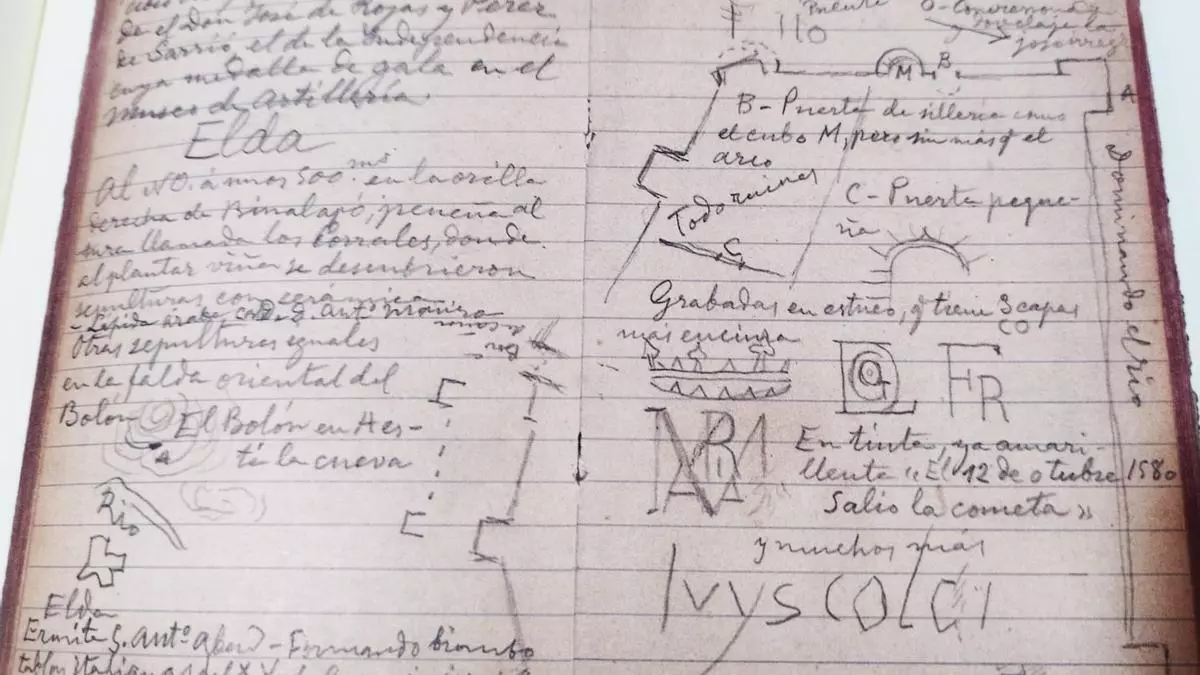 de el Don José de Rojas y Perez
de Sarrió, el de la Independencia
cuya medalla de gala en el
museo de Artillería.
Elda
Al NO. á unos 500 ms en la orilla
derecha de Binalapó,
llamada los Corrales, donde
al plantar viñas se descubrieron
sepulturas con cerámica
Otras sepulturas iguales
en la falda oriental del
Bolón
El Bolón en A es-
tá la cueva
A
Río
Elda
Ermita S. Antº abad - Formando biombo
tablas
Puente
M
B
A
B - Puerta de sillería como
el cubo M, pero sin más q el
arco
Todo ruinas
C
C - Puerta peque-
ña
Dominando el rio
Grabadas en estuco, q tiene 3 capas
más encima
CO
FR
En tinta, ya amari-
llenta "El 12 de otubre 1580
Salio la cometa"
y muchos más
IVYSCOLCI